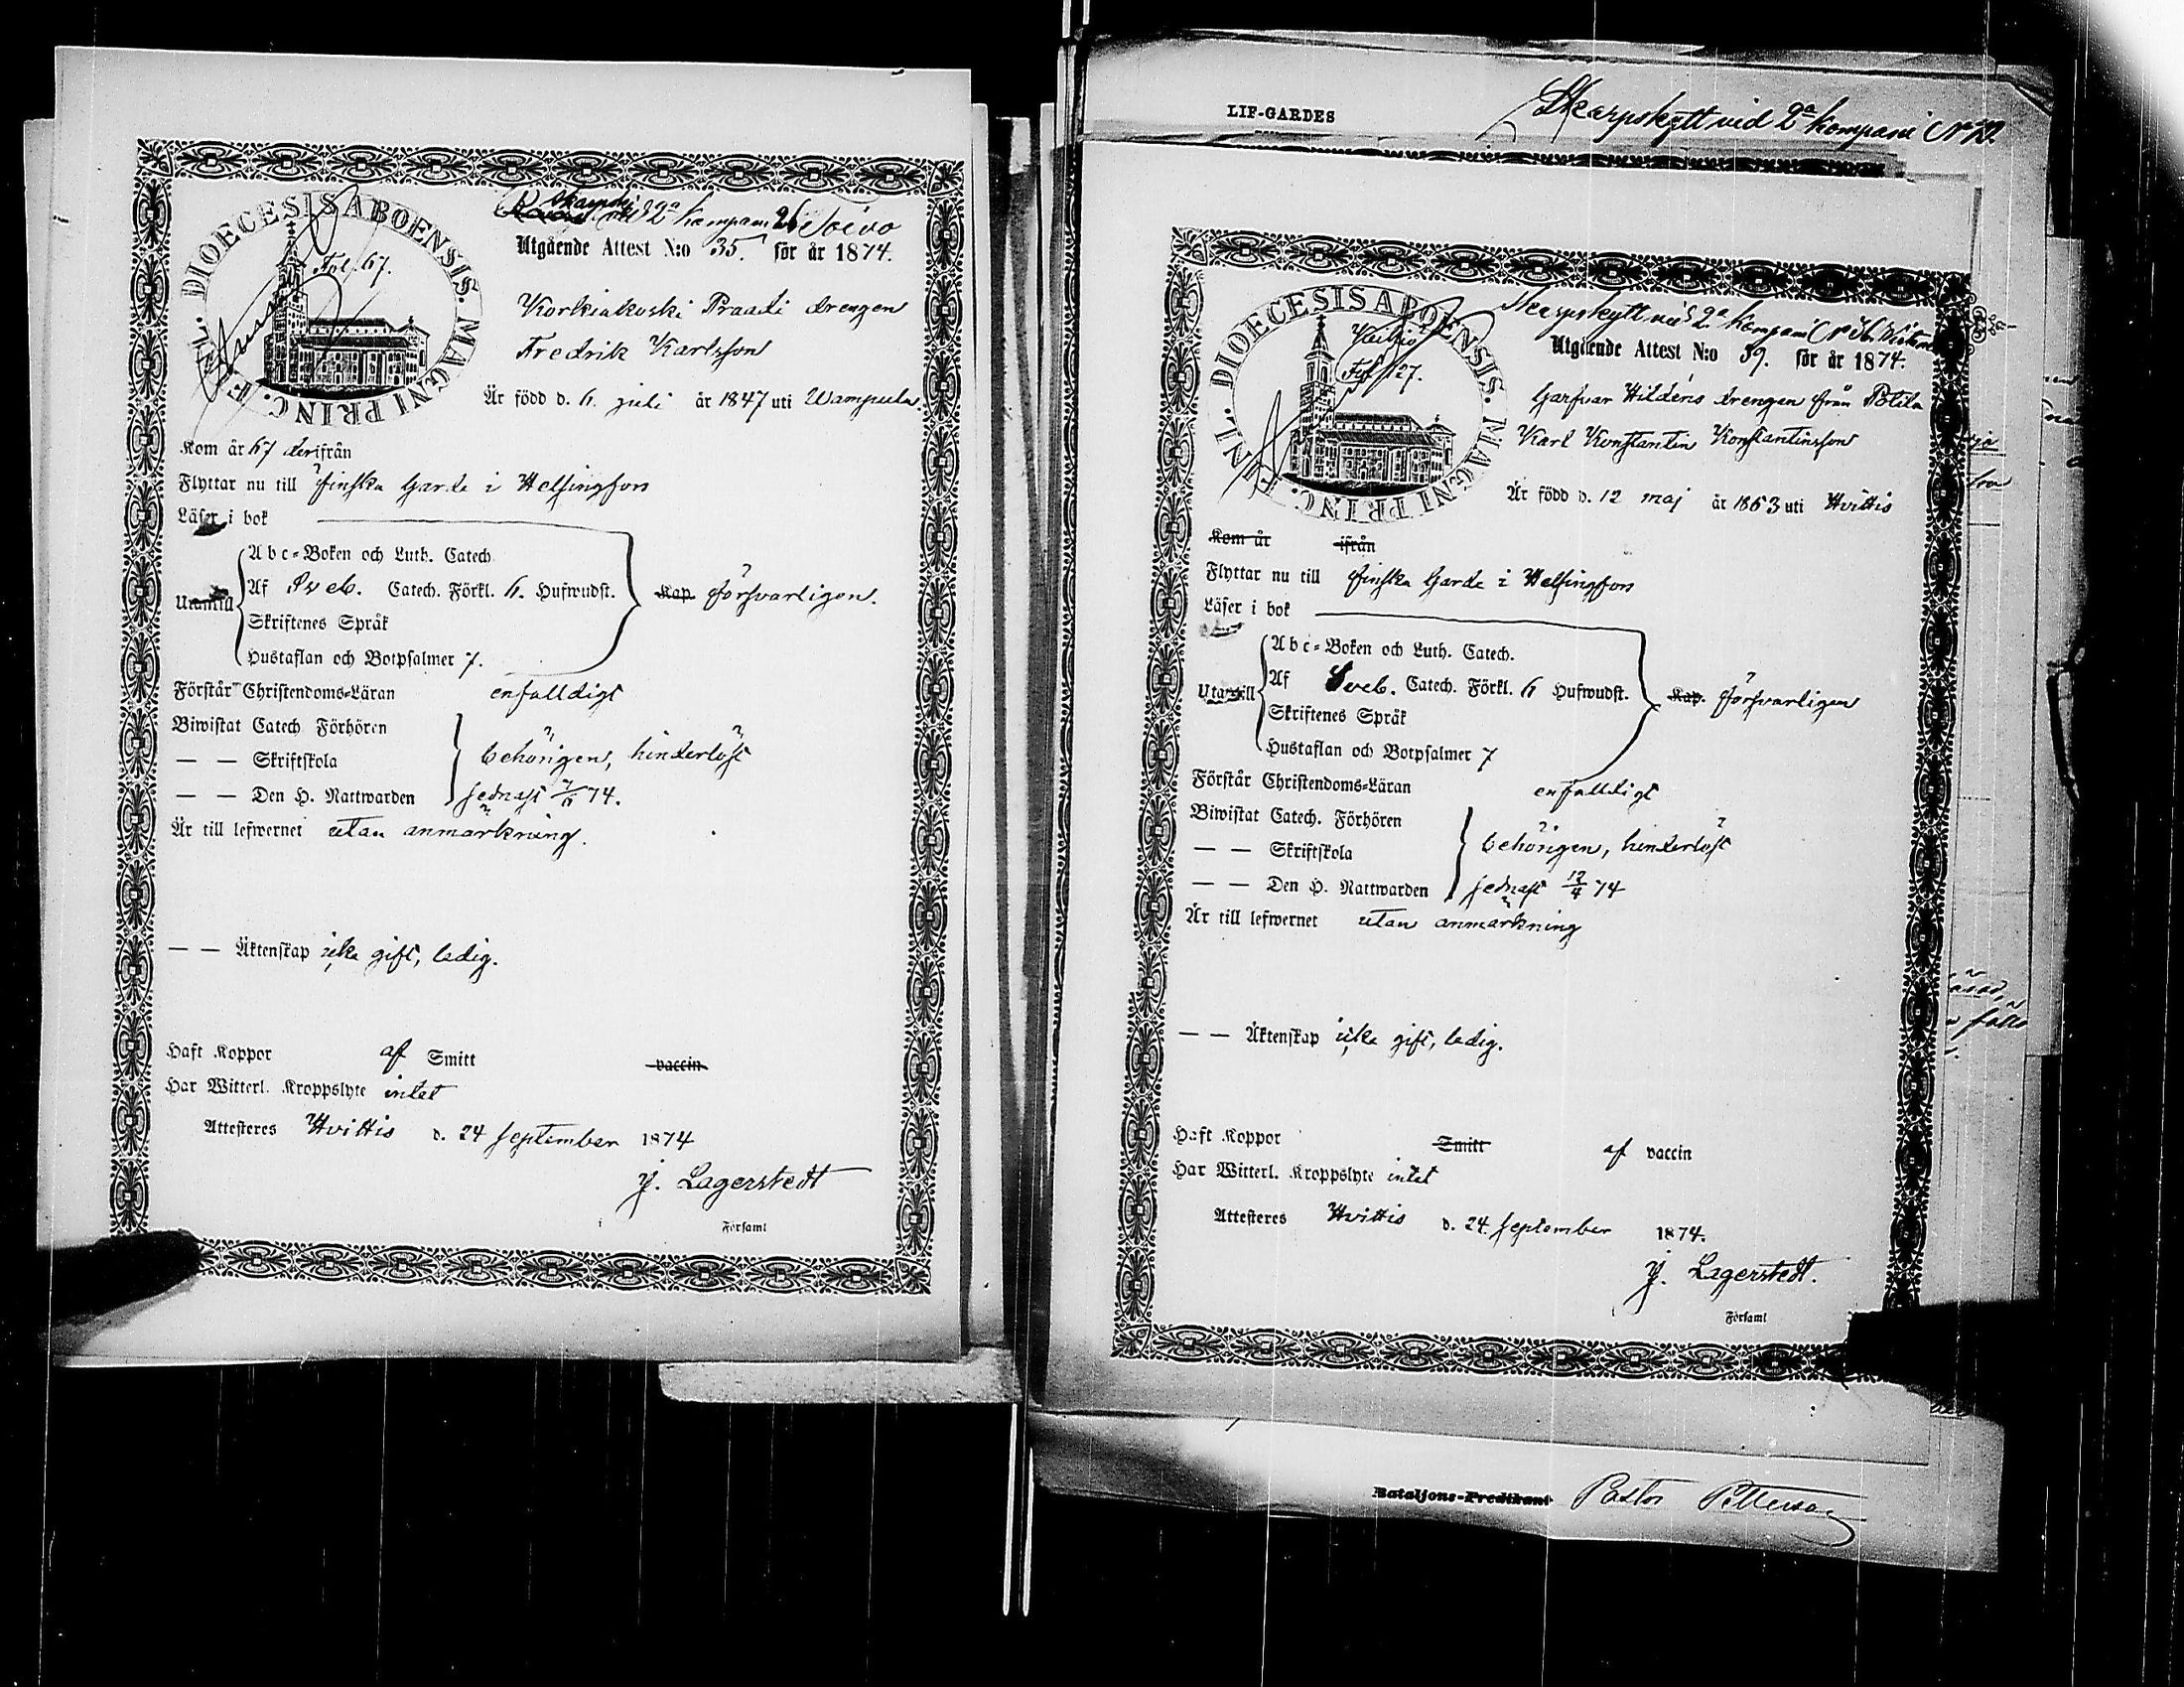 DIOECESIS ABOENSIS. MAGNI PRINC. FINL.
Fol. 67.
Skarpsk. vid 2a kompani 26 Toivo
Utgående Attest N:o 35. för år 1874.
Korkiakoski Praati drengen
Fredrik Karlsson
Är född d. 6. juli år 1847 uti Wampula.
Kom år 67 derifrån
Flyttar nu till finska Garde i Helsingfors
Läser i bok
Utantill
Abc-Boken och Luth. Catech
Af Sveb. Catech. Förkl. 6. Hufwudst.
Kap. försvarligen.
Skriftenes Språk
Hustaflan och Botpsalmer 7.
Förstår Christendoms-Läran enfalldigt
Biwistat Catech Förhören
— — Skriftskola behörigen, hinderlöst
— — Den H. Nattwarden sednast 7/6 74.
Är till lefwernet utan anmärkning.
— — Äktenskap icke gift, ledig.
Haft Koppor af Smitt vaccin
Har Witterl. Kroppslyte intet
Attesteras Hvittis d. 24 September 1874
J. Lagerstedt
Församl
LIF-GARDES
Skarpskytt vid 2a kompani N 12.
DIOECESIS ABOENSIS. MAGNI PRINC. FINL.
Fol. 127.
Skarpskytt vid 2a kompani N
Utgående Attest N:o 39. för år 1874.
Garfvar Hildéns drengen från Pötila
Karl Konstantin Konstantinsson
Är född d. 12 maj år 1853 uti Hvittis
Kom år ifrån
Flyttar nu till finska Garde i Helsingfors
Läser i bok
Utantill
Abc-Boken och Luth. Catech.
Af Sveb. Catech. Förkl. 6 Hufwudst.
Kap. försvarligen
Skriftenes Språk
Hustaflan och Botpsalmer 7
Förstår Christendoms-Läran enfalldigt
Biwistat Catech. Förhören
— — Skriftskola behörigen, hinderlöst
— — Den H. Nattwarden sednast 12/4 74
Är till lefwernet utan anmärkning
— — Äktenskap icke gift, ledig.
Haft Koppor Smitt af vaccin
Har Witterl. Kroppslyte intet
Attesteres Hvittis d. 24. September 1874.
J. Lagerstedt.
Församl
Bataljons-Predikant Pastor